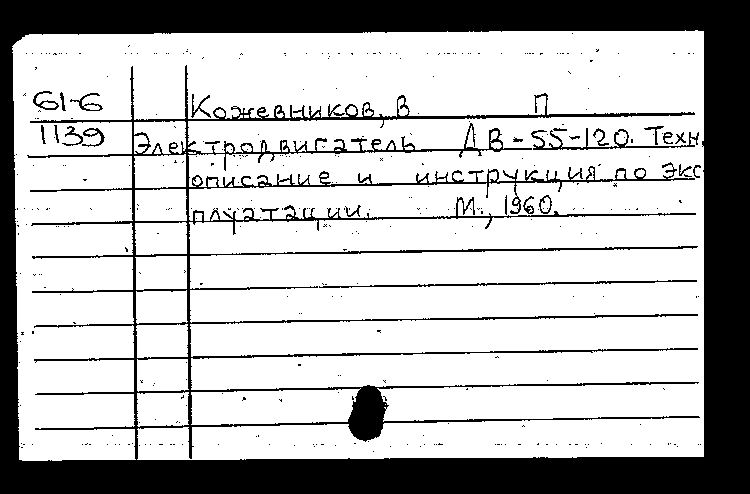 61-6 Кожевников, В П
1139 Электродвигатель ДВ-55-120. Техн.
описание и инструкция по экс
плуатации. М., 1960.